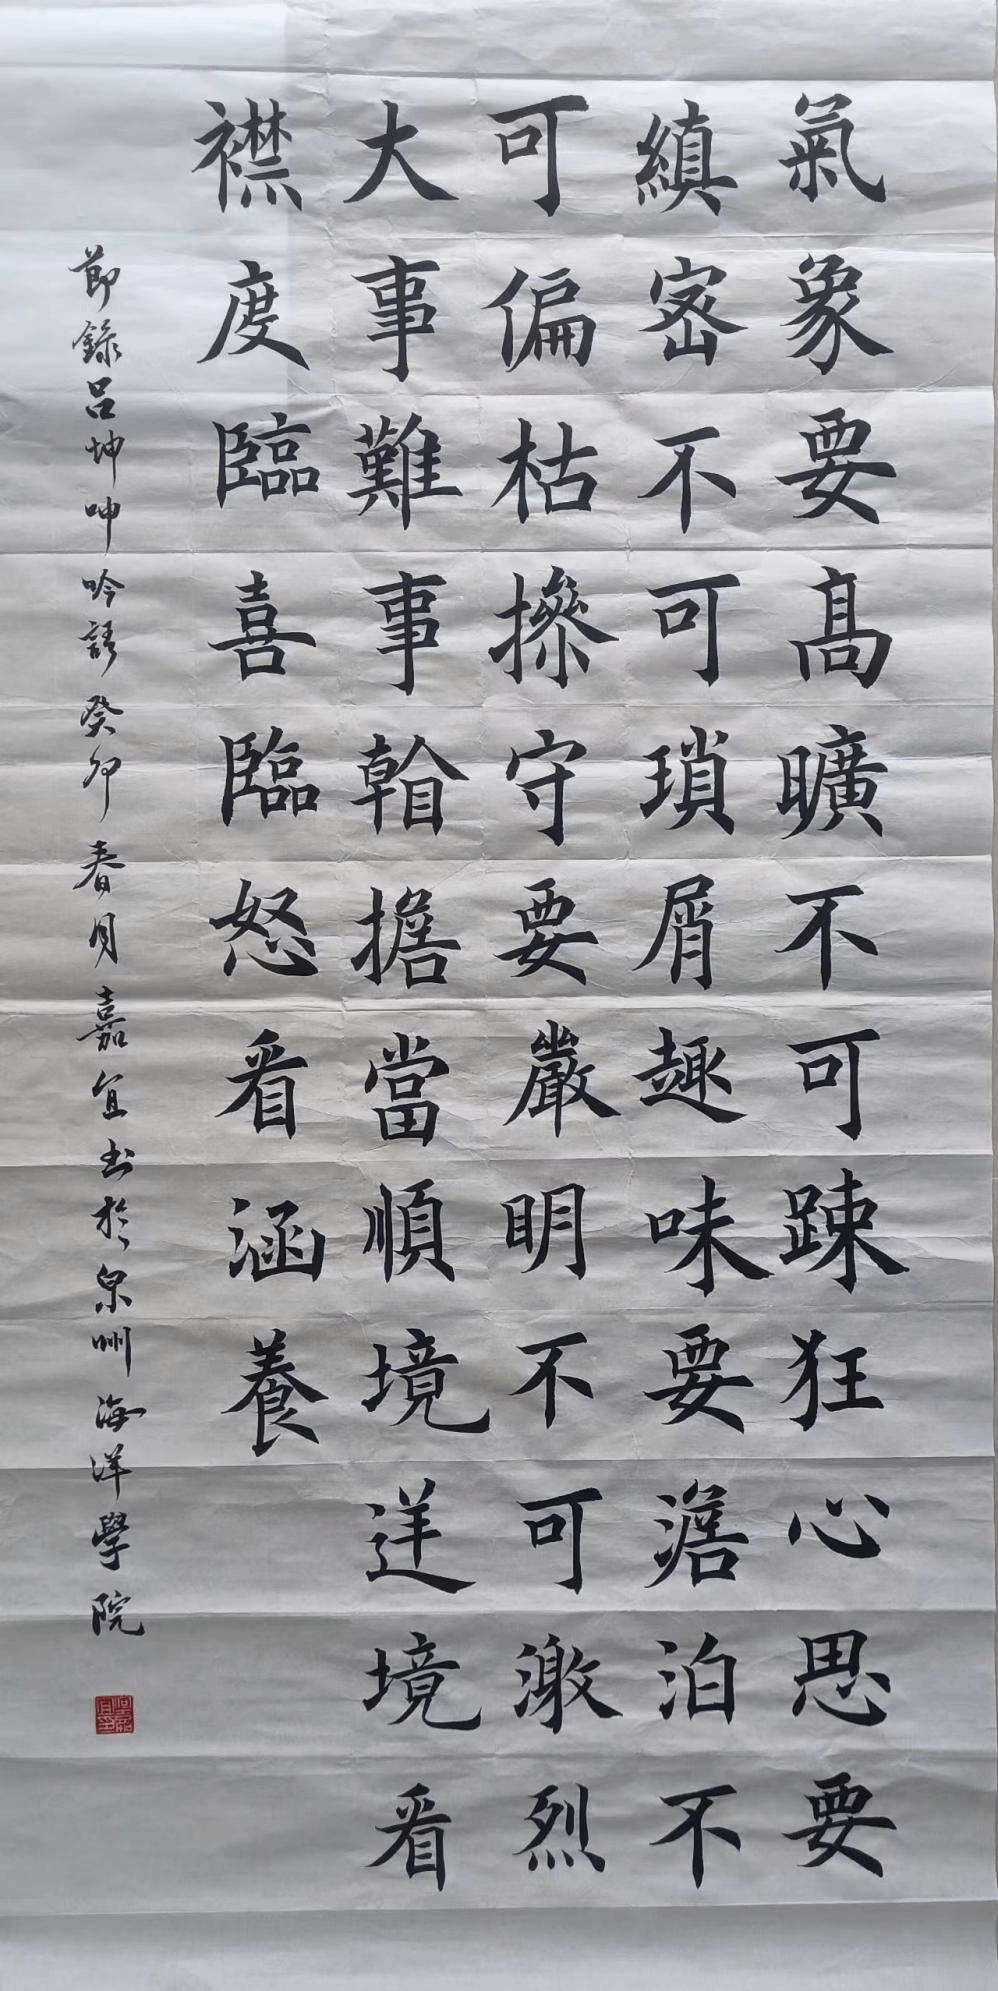 氣象要髙曠不可踈狂心思要
縝密不可瑣屑趣味要澹泊不
可偏枯操守要嚴明不可激烈
大事難事看擔當順境逆境看
襟度臨喜臨怒看涵養
節錄呂坤呻吟語癸卯春月嘉宜书於泉州海洋學院
何嘉宜印